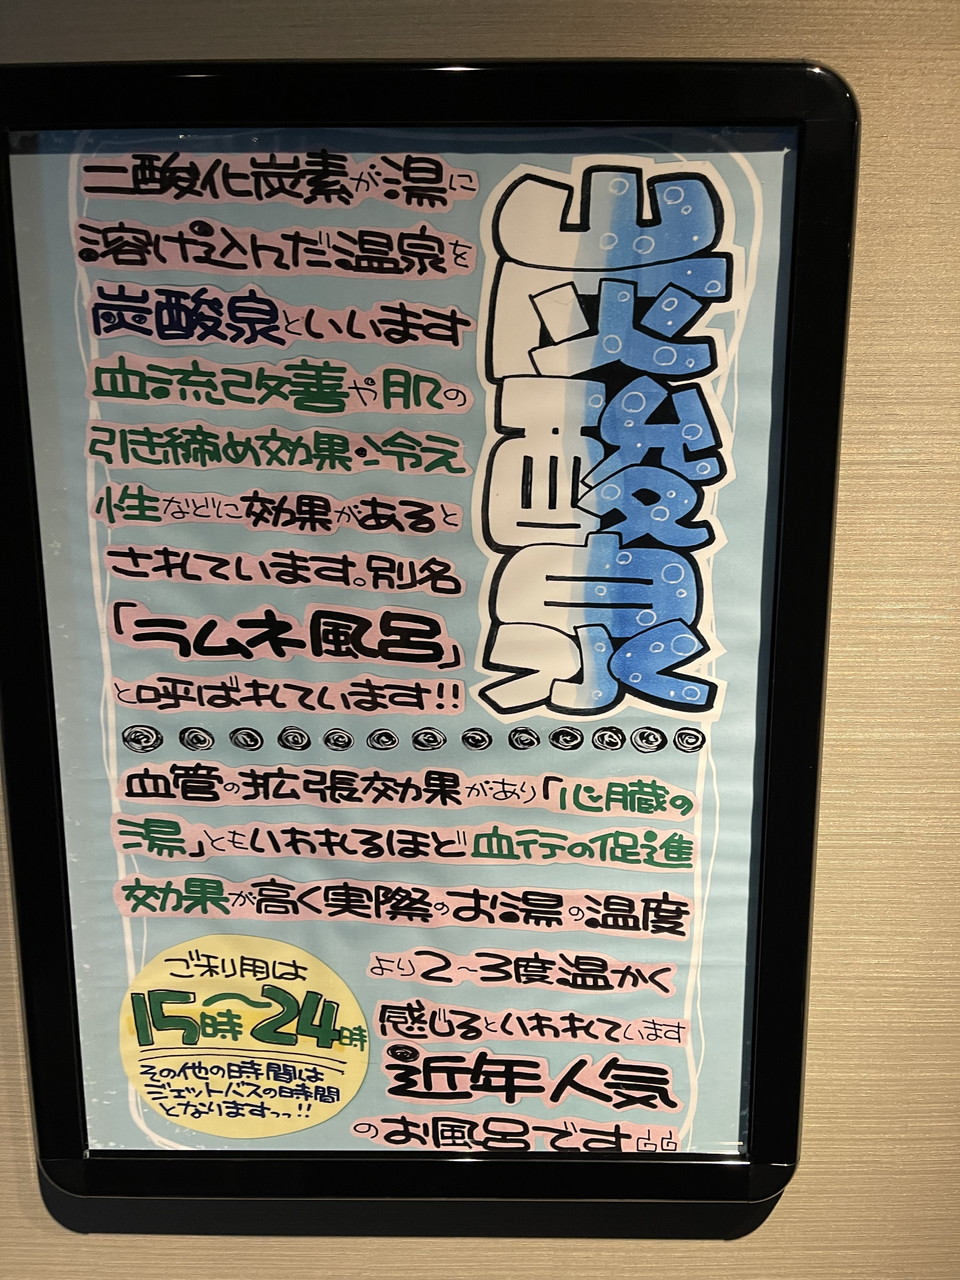 炭酸泉
二酸化炭素が湯に
溶け込んだ温泉を
炭酸泉といいます
血流改善や肌の
引き締め効果・冷え
性などに効果があると
されています。別名
「ラムネ風呂」
と呼ばれています!!
血管の拡張効果があり「心臓の
湯」ともいわれるほど血行の促進
効果が高く実際のお湯の温度
より2〜3度温かく
感じるといわれています
近年人気
のお風呂です
ご利用は
15時〜24時
その他の時間は
ジェットバスの時間
となりますっっ!!